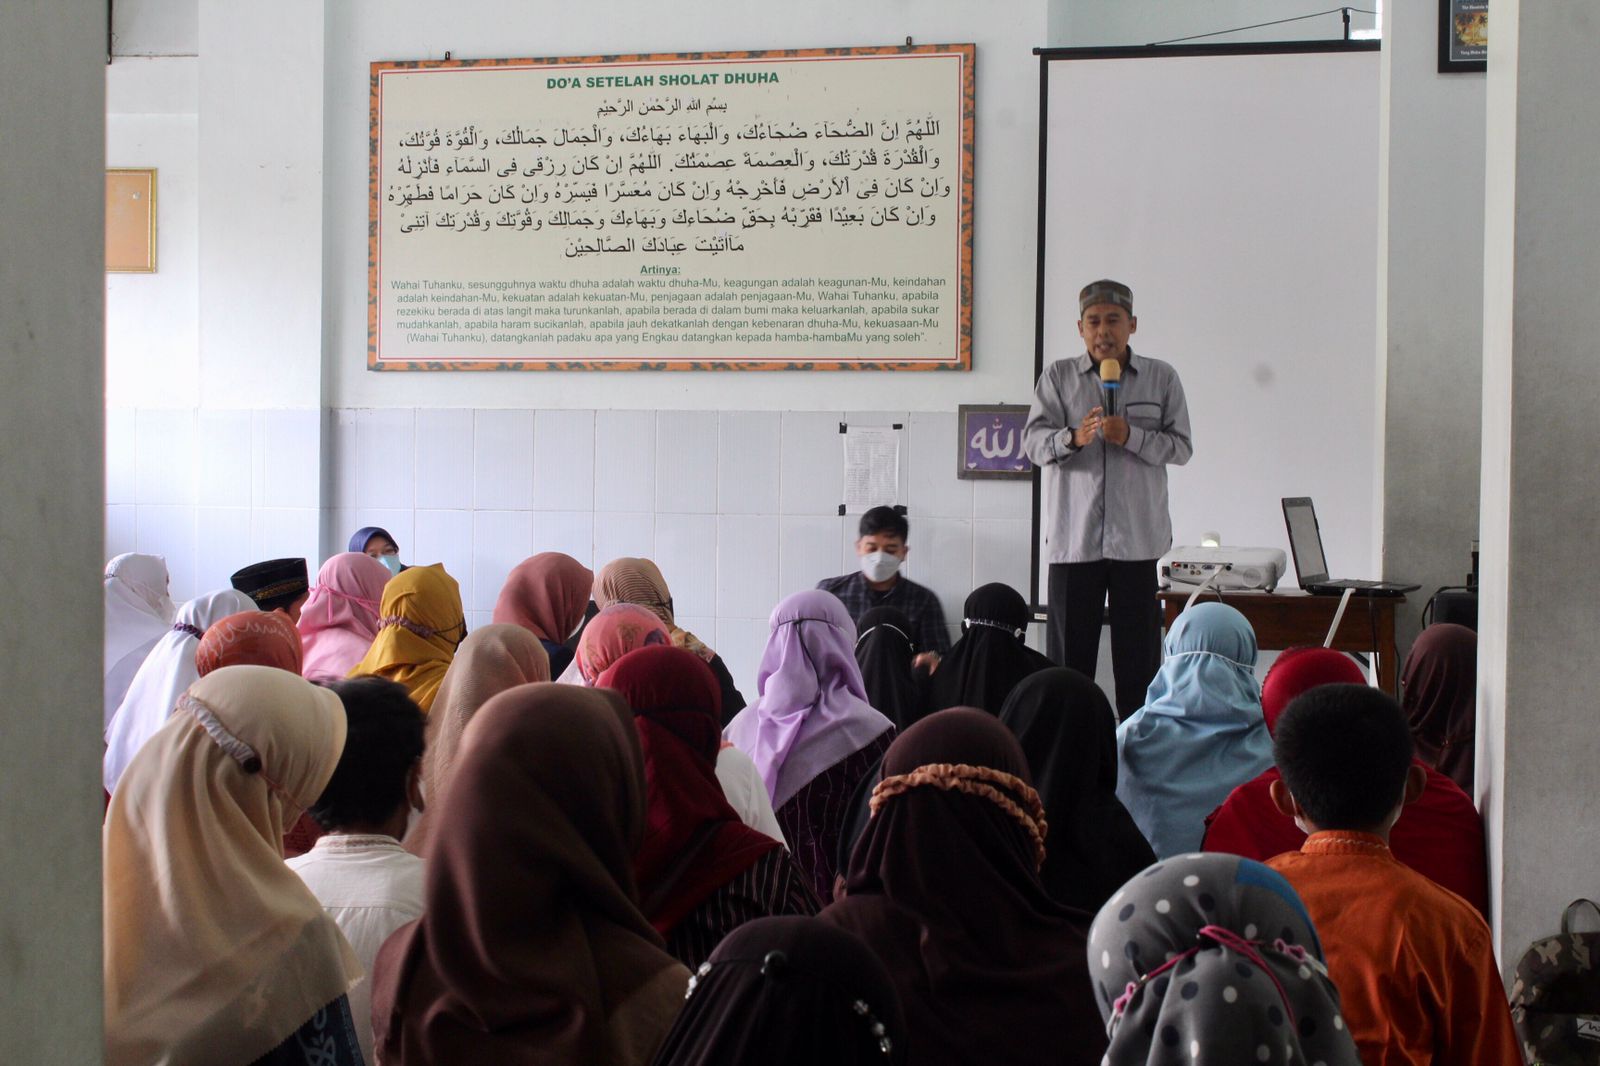 DO'A SETELAH SHOLAT DHUHA
بِسْمِ اللهِ الرَّحْمٰنِ الرَّحِيْمِ
اَللّٰهُمَّ اِنَّ الضُّحَآءَ ضُحَاءُكَ، وَالْبَهَاءَ بَهَاءُكَ، وَالْجَمَالَ جَمَالُكَ، وَالْقُوَّةَ قُوَّتُكَ،
وَالْقُدْرَةَ قُدْرَتُكَ، وَالْعِصْمَةَ عِصْمَتُكَ. اَللّٰهُمَّ اِنْ كَانَ رِزْقِى فِى السَّمَآءِ فَأَنْزِلْهُ
وَاِنْ كَانَ فِى اْلأَرْضِ فَأَخْرِجْهُ وَاِنْ كَانَ مُعَسَّرًا فَيَسِّرْهُ وَاِنْ كَانَ حَرَامًا فَطَهِّرْهُ
وَاِنْ كَانَ بَعِيْدًا فَقَرِّبْهُ بِحَقِّ ضُحَاءِكَ وَبَهَاءِكَ وَجَمَالِكَ وَقُوَّتِكَ وَقُدْرَتِكَ آتِنِىْ
مَآاَتَيْتَ عِبَادَكَ الصَّالِحِيْنَ
Artinya:
Wahai Tuhanku, sesungguhnya waktu dhuha adalah waktu dhuha-Mu, keagungan adalah keagunan-Mu, keindahan
adalah keindahan-Mu, kekuatan adalah kekuatan-Mu, penjagaan adalah penjagaan-Mu, Wahai Tuhanku, apabila
rezekiku berada di atas langit maka turunkanlah, apabila berada di dalam bumi maka keluarkanlah, apabila sukar
mudahkanlah, apabila haram sucikanlah, apabila jauh dekatkanlah dengan kebenaran dhuha-Mu, kekuasaan-Mu
(Wahai Tuhanku), datangkanlah padaku apa yang Engkau datangkan kepada hamba-hambaMu yang soleh".
الله